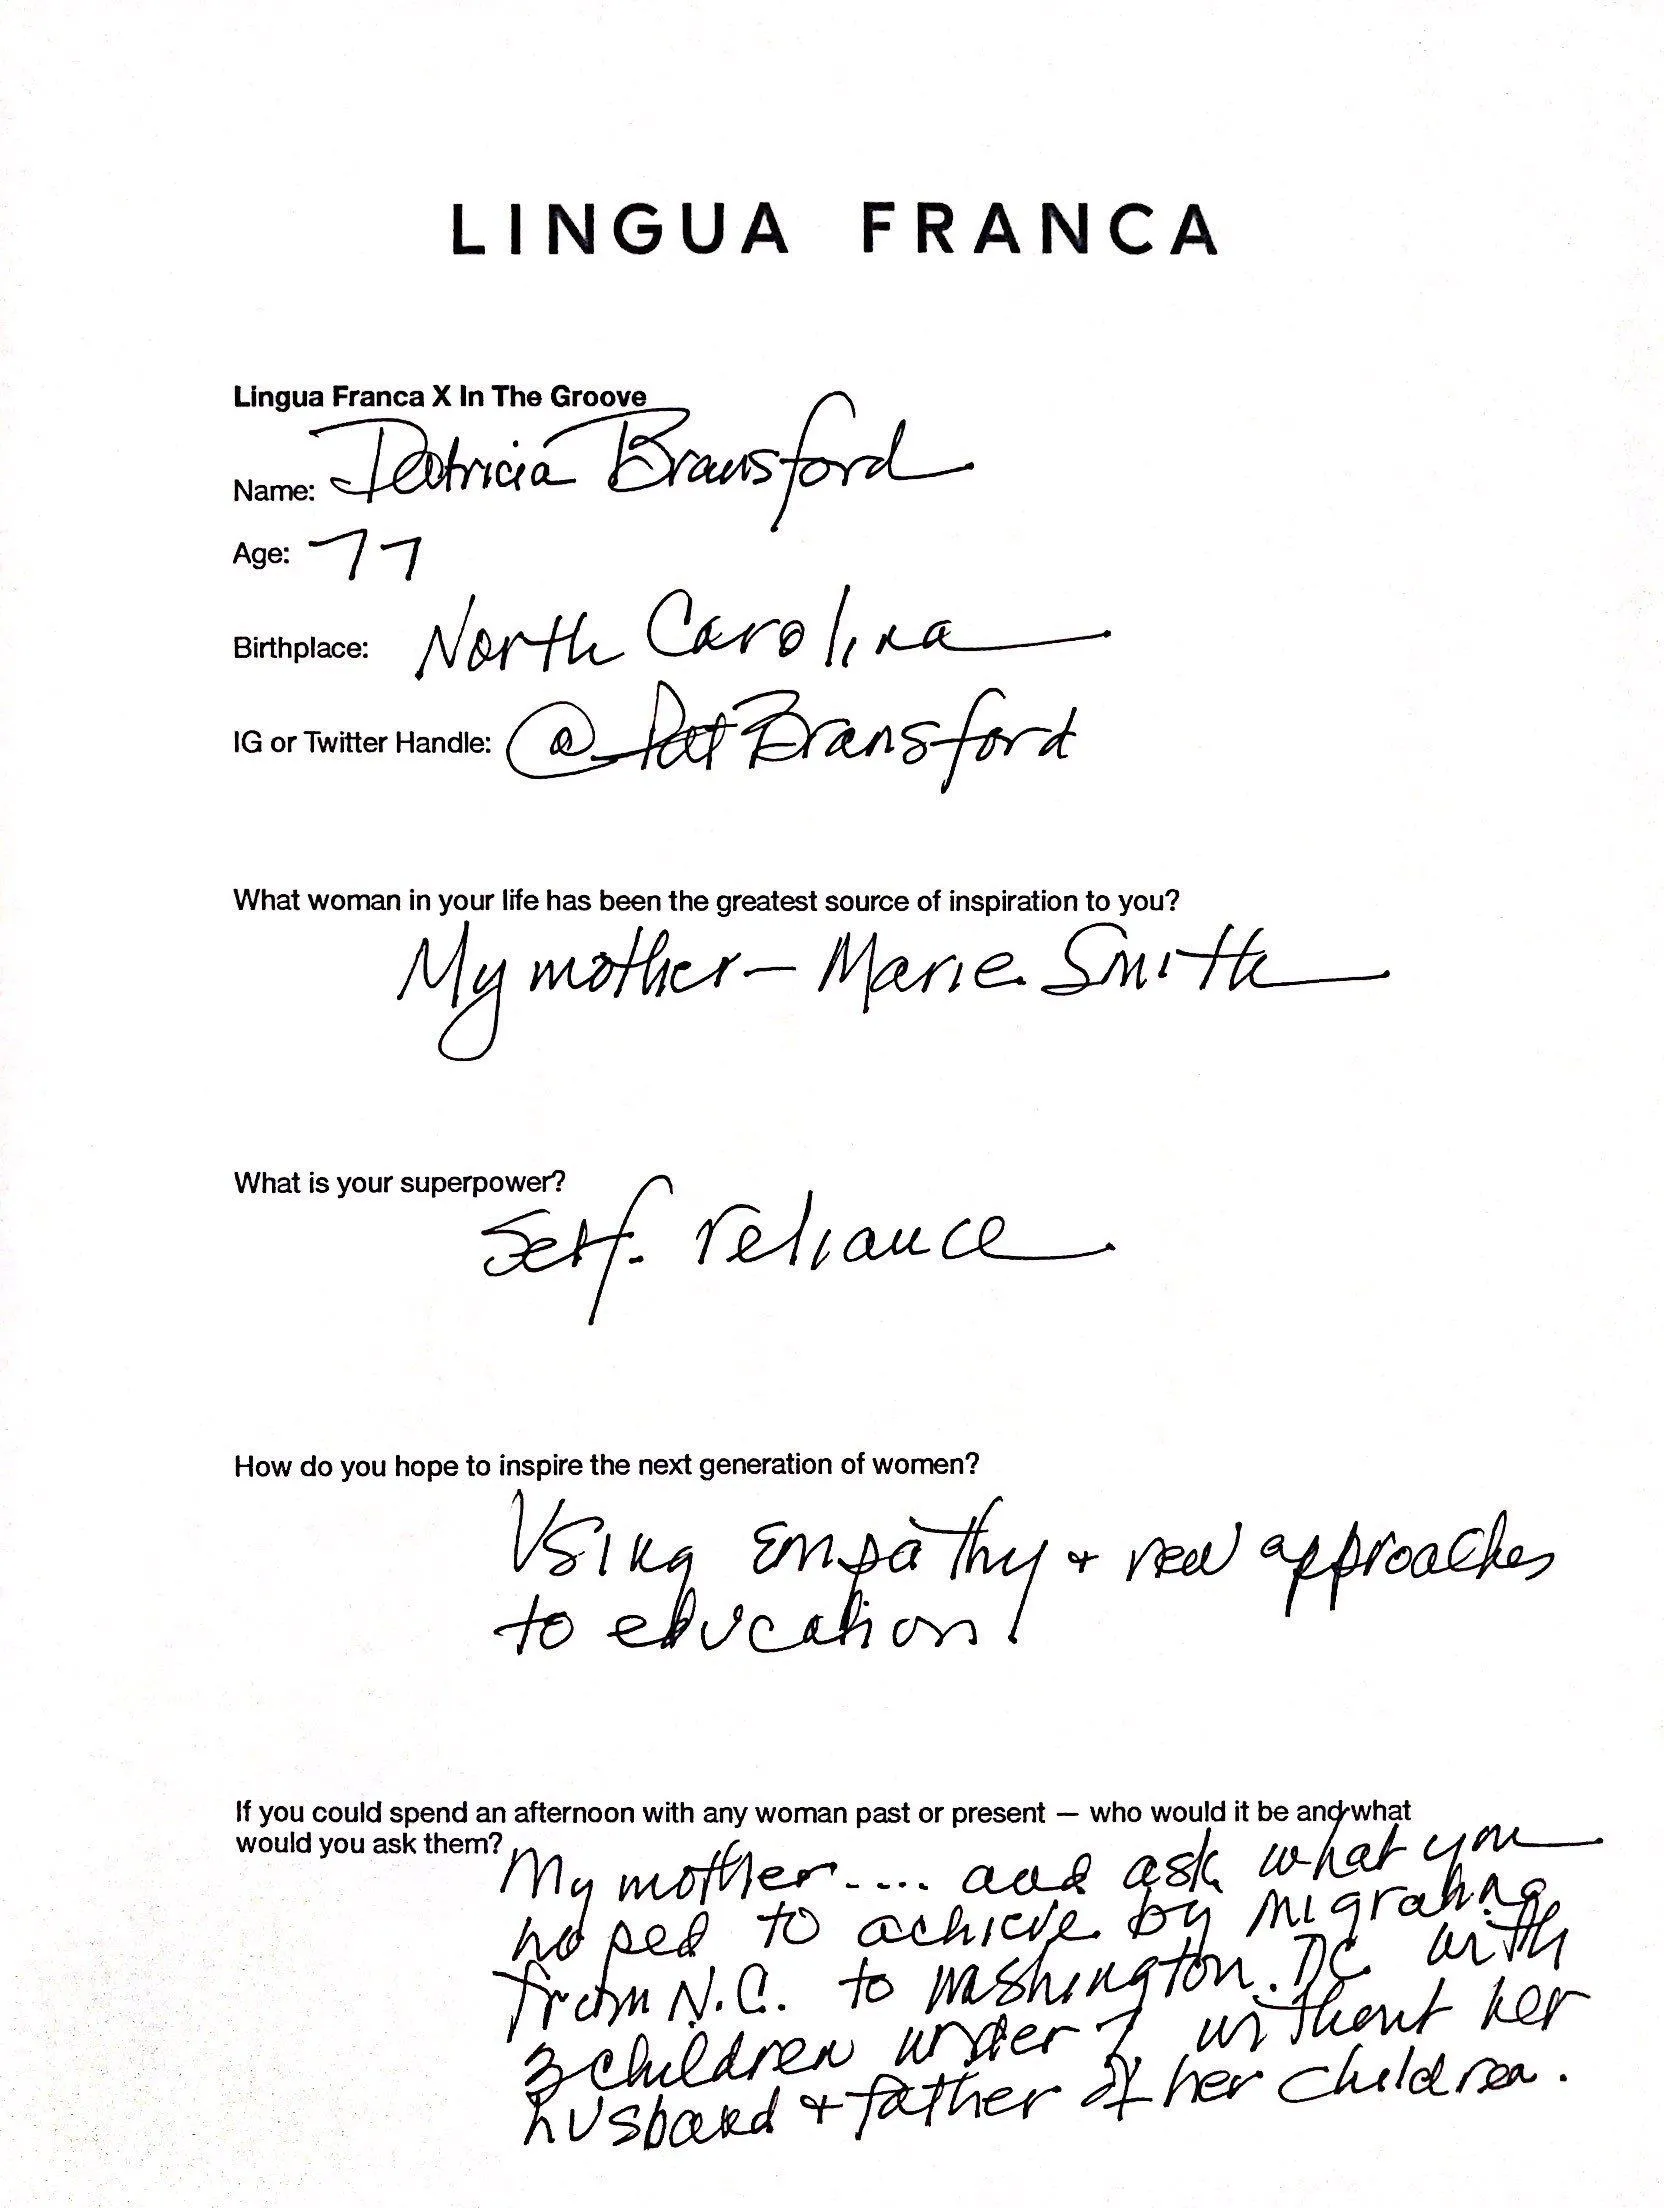 LINGUA FRANCA
Lingua Franca X In The Groove
Name: Patricia Bransford
Age: 77
Birthplace: North Carolina
IG or Twitter Handle: @PatBransford
What woman in your life has been the greatest source of inspiration to you?
My mother – Marie Smith
What is your superpower?
Self-reliance
How do you hope to inspire the next generation of women?
Using empathy + new approaches
to education.
If you could spend an afternoon with any woman past or present — who would it be and what
would you ask them?
My mother.... and ask what you
hoped to achieve by migrating
from N.C. to Washington. DC with
3 children under 7 without her
husband + father of her children.